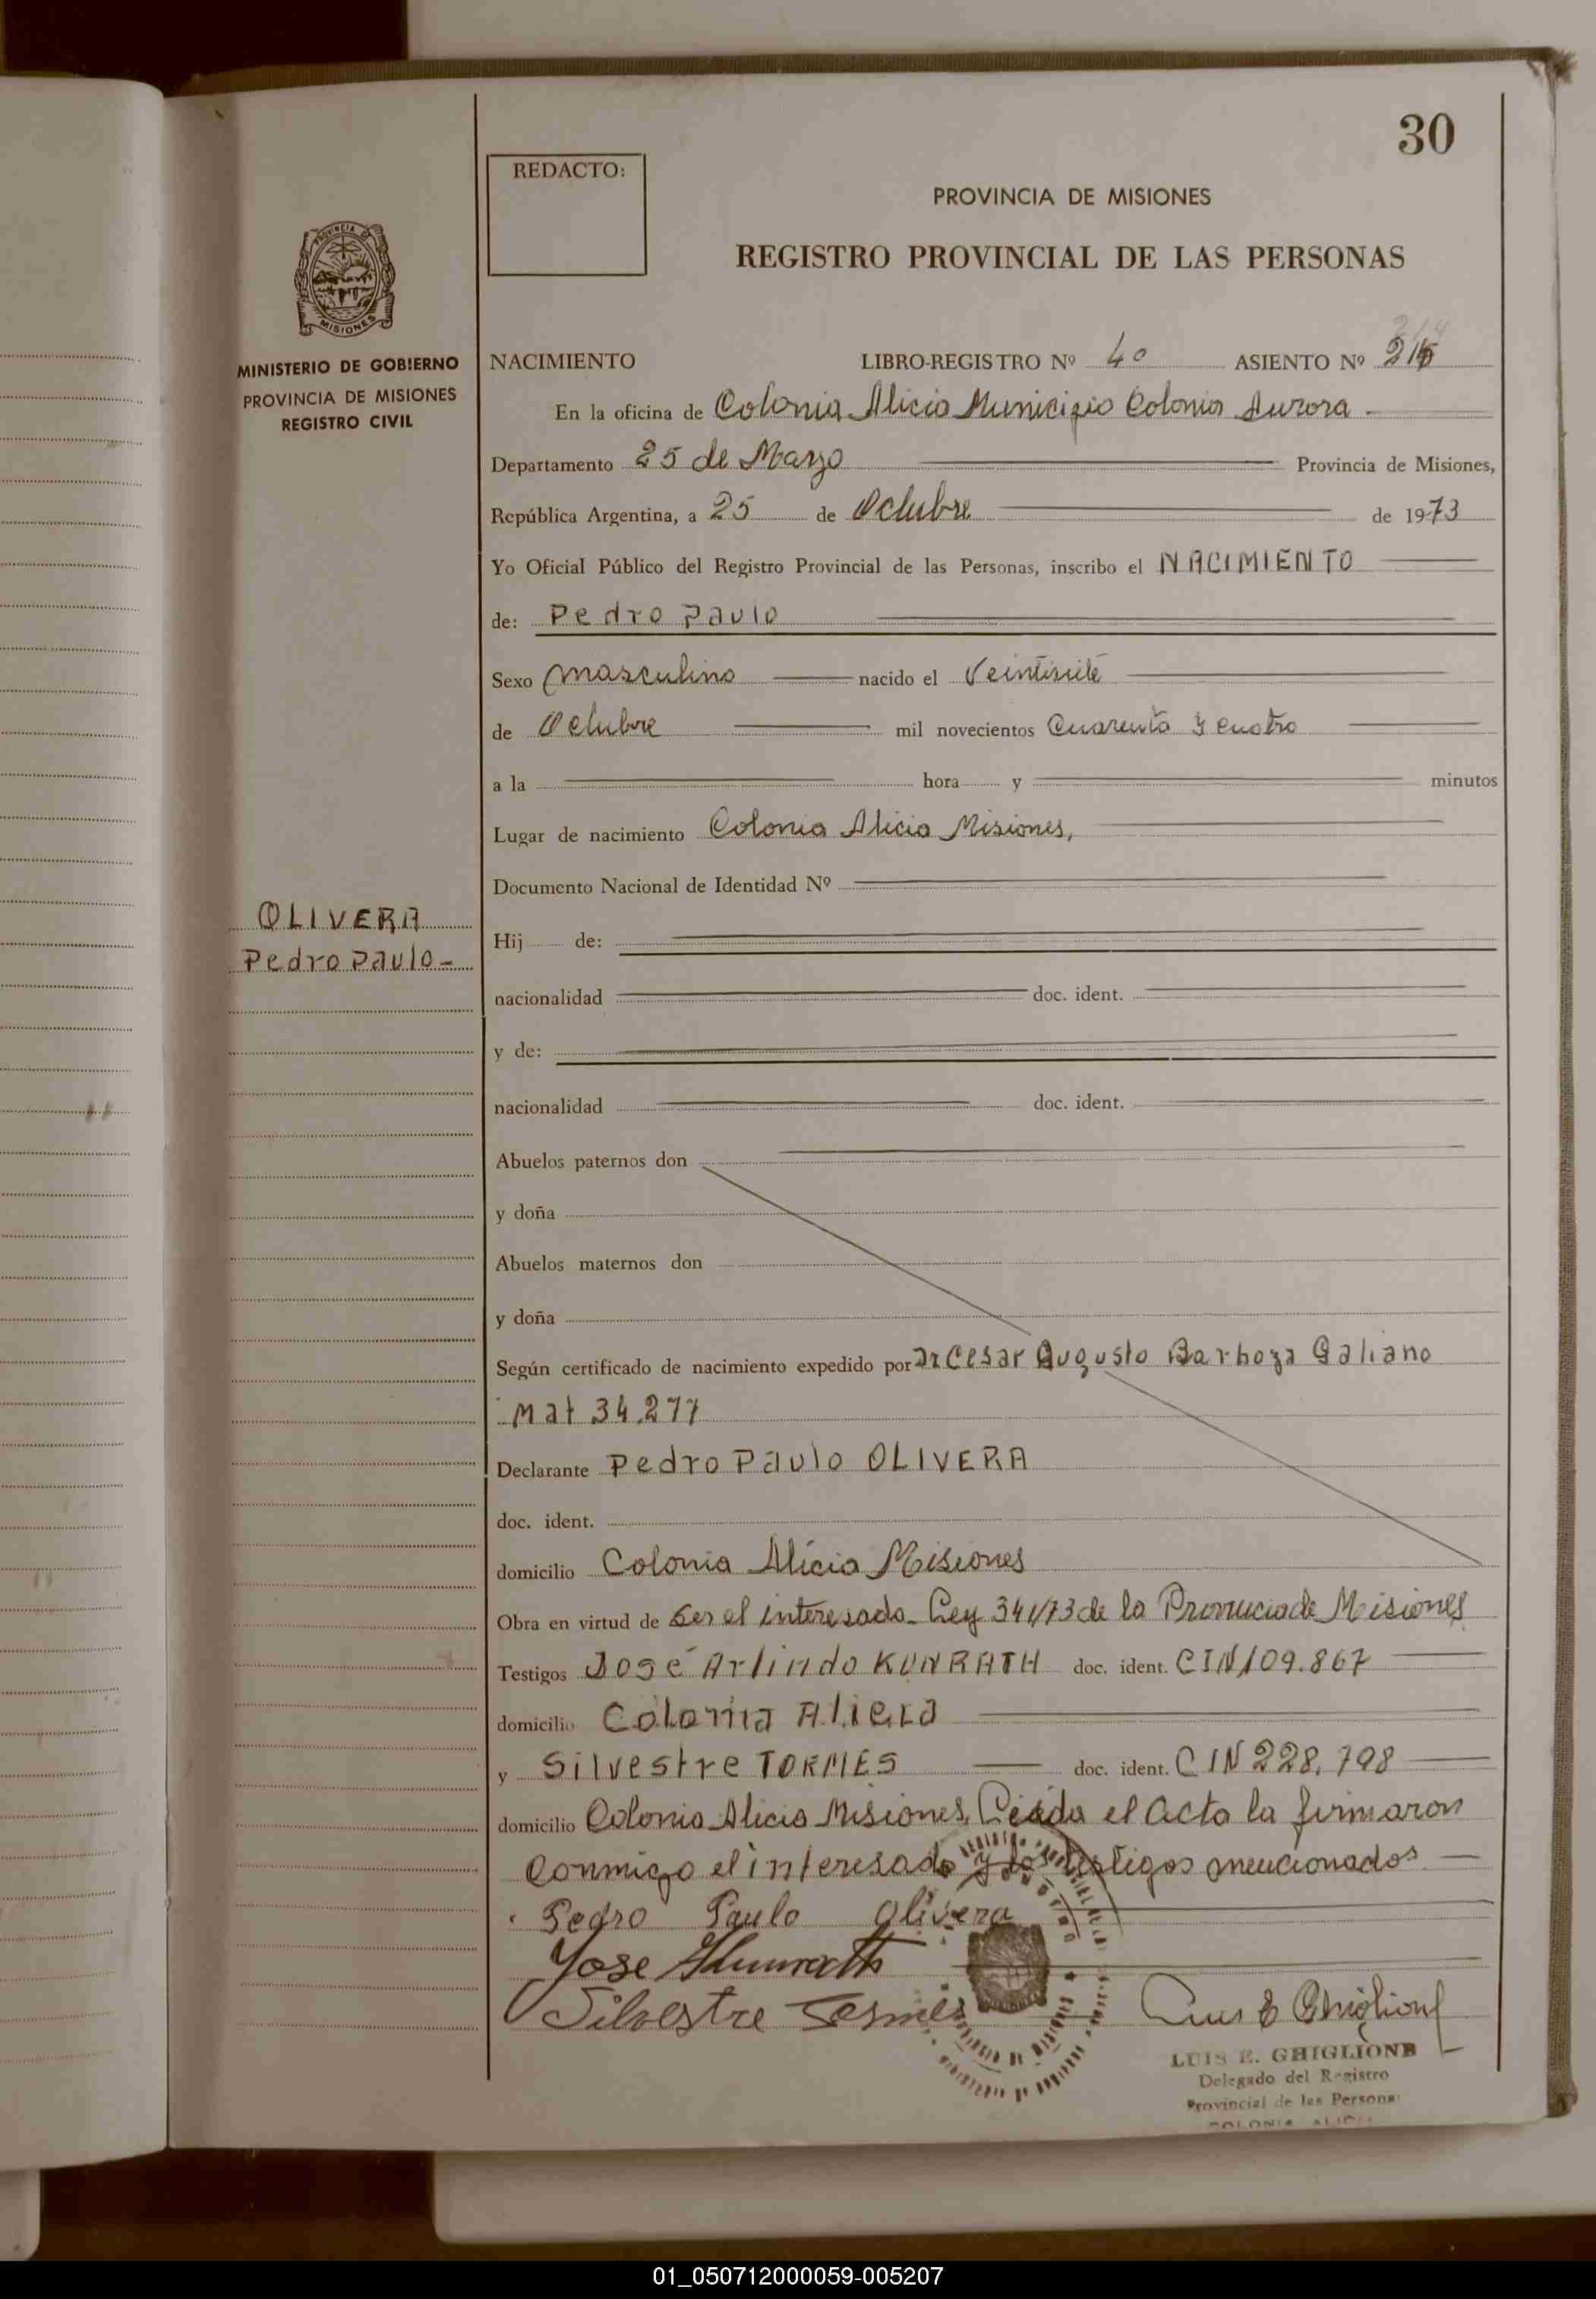 30
REDACTO:
PROVINCIA DE MISIONES
REGISTRO PROVINCIAL DE LAS PERSONAS
PROVINCIA DE
MISIONES
MINISTERIO DE GOBIERNO
PROVINCIA DE MISIONES
REGISTRO CIVIL
NACIMIENTO LIBRO-REGISTRO Nº 40 ASIENTO Nº
En la oficina de Colonia Alicia Municipio Colonia Aurora
Departamento 25 de Mayo Provincia de Misiones,
República Argentina, a 25 de Octubre de 1973
Yo Oficial Público del Registro Provincial de las Personas, inscribo el NACIMIENTO
de: Pedro Paulo
Sexo masculino nacido el Veintisiete
de Octubre mil novecientos Cuarenta y cuatro
a la hora y minutos
Lugar de nacimiento Colonia Alicia Misiones,
Documento Nacional de Identidad Nº
OLIVERA
Pedro Paulo-
Hij de:
nacionalidad doc. ident.
y de:
nacionalidad doc. ident.
Abuelos paternos don
y doña
Abuelos maternos don
y doña
Según certificado de nacimiento expedido por Dr Cesar Augusto Barboza Galiano
Mat 34.277
Declarante Pedro Paulo OLIVERA
doc. ident.
domicilio Colonia Alicia Misiones
Obra en virtud de ser el interesado-Ley 341/73 de la Provincia de Misiones
Testigos José Arlindo KUNRATH doc. ident. CIN 109.867
domicilio Colonia Alicia
y Silvestre TORMES doc. ident. CIN 228.798
domicilio Colonia Alicia Misiones, Leída el Acta la firmaron
conmigo el interesado y los testigos mencionados
Pedro Paulo Olivera
Jose Kunrath
Silvestre Tormes
Luis E Ghiglione
LUIS E. GHIGLIONE
Delegado del Registro
Provincial de las Personas
COLONIA ALICIA
01_050712000059-005207